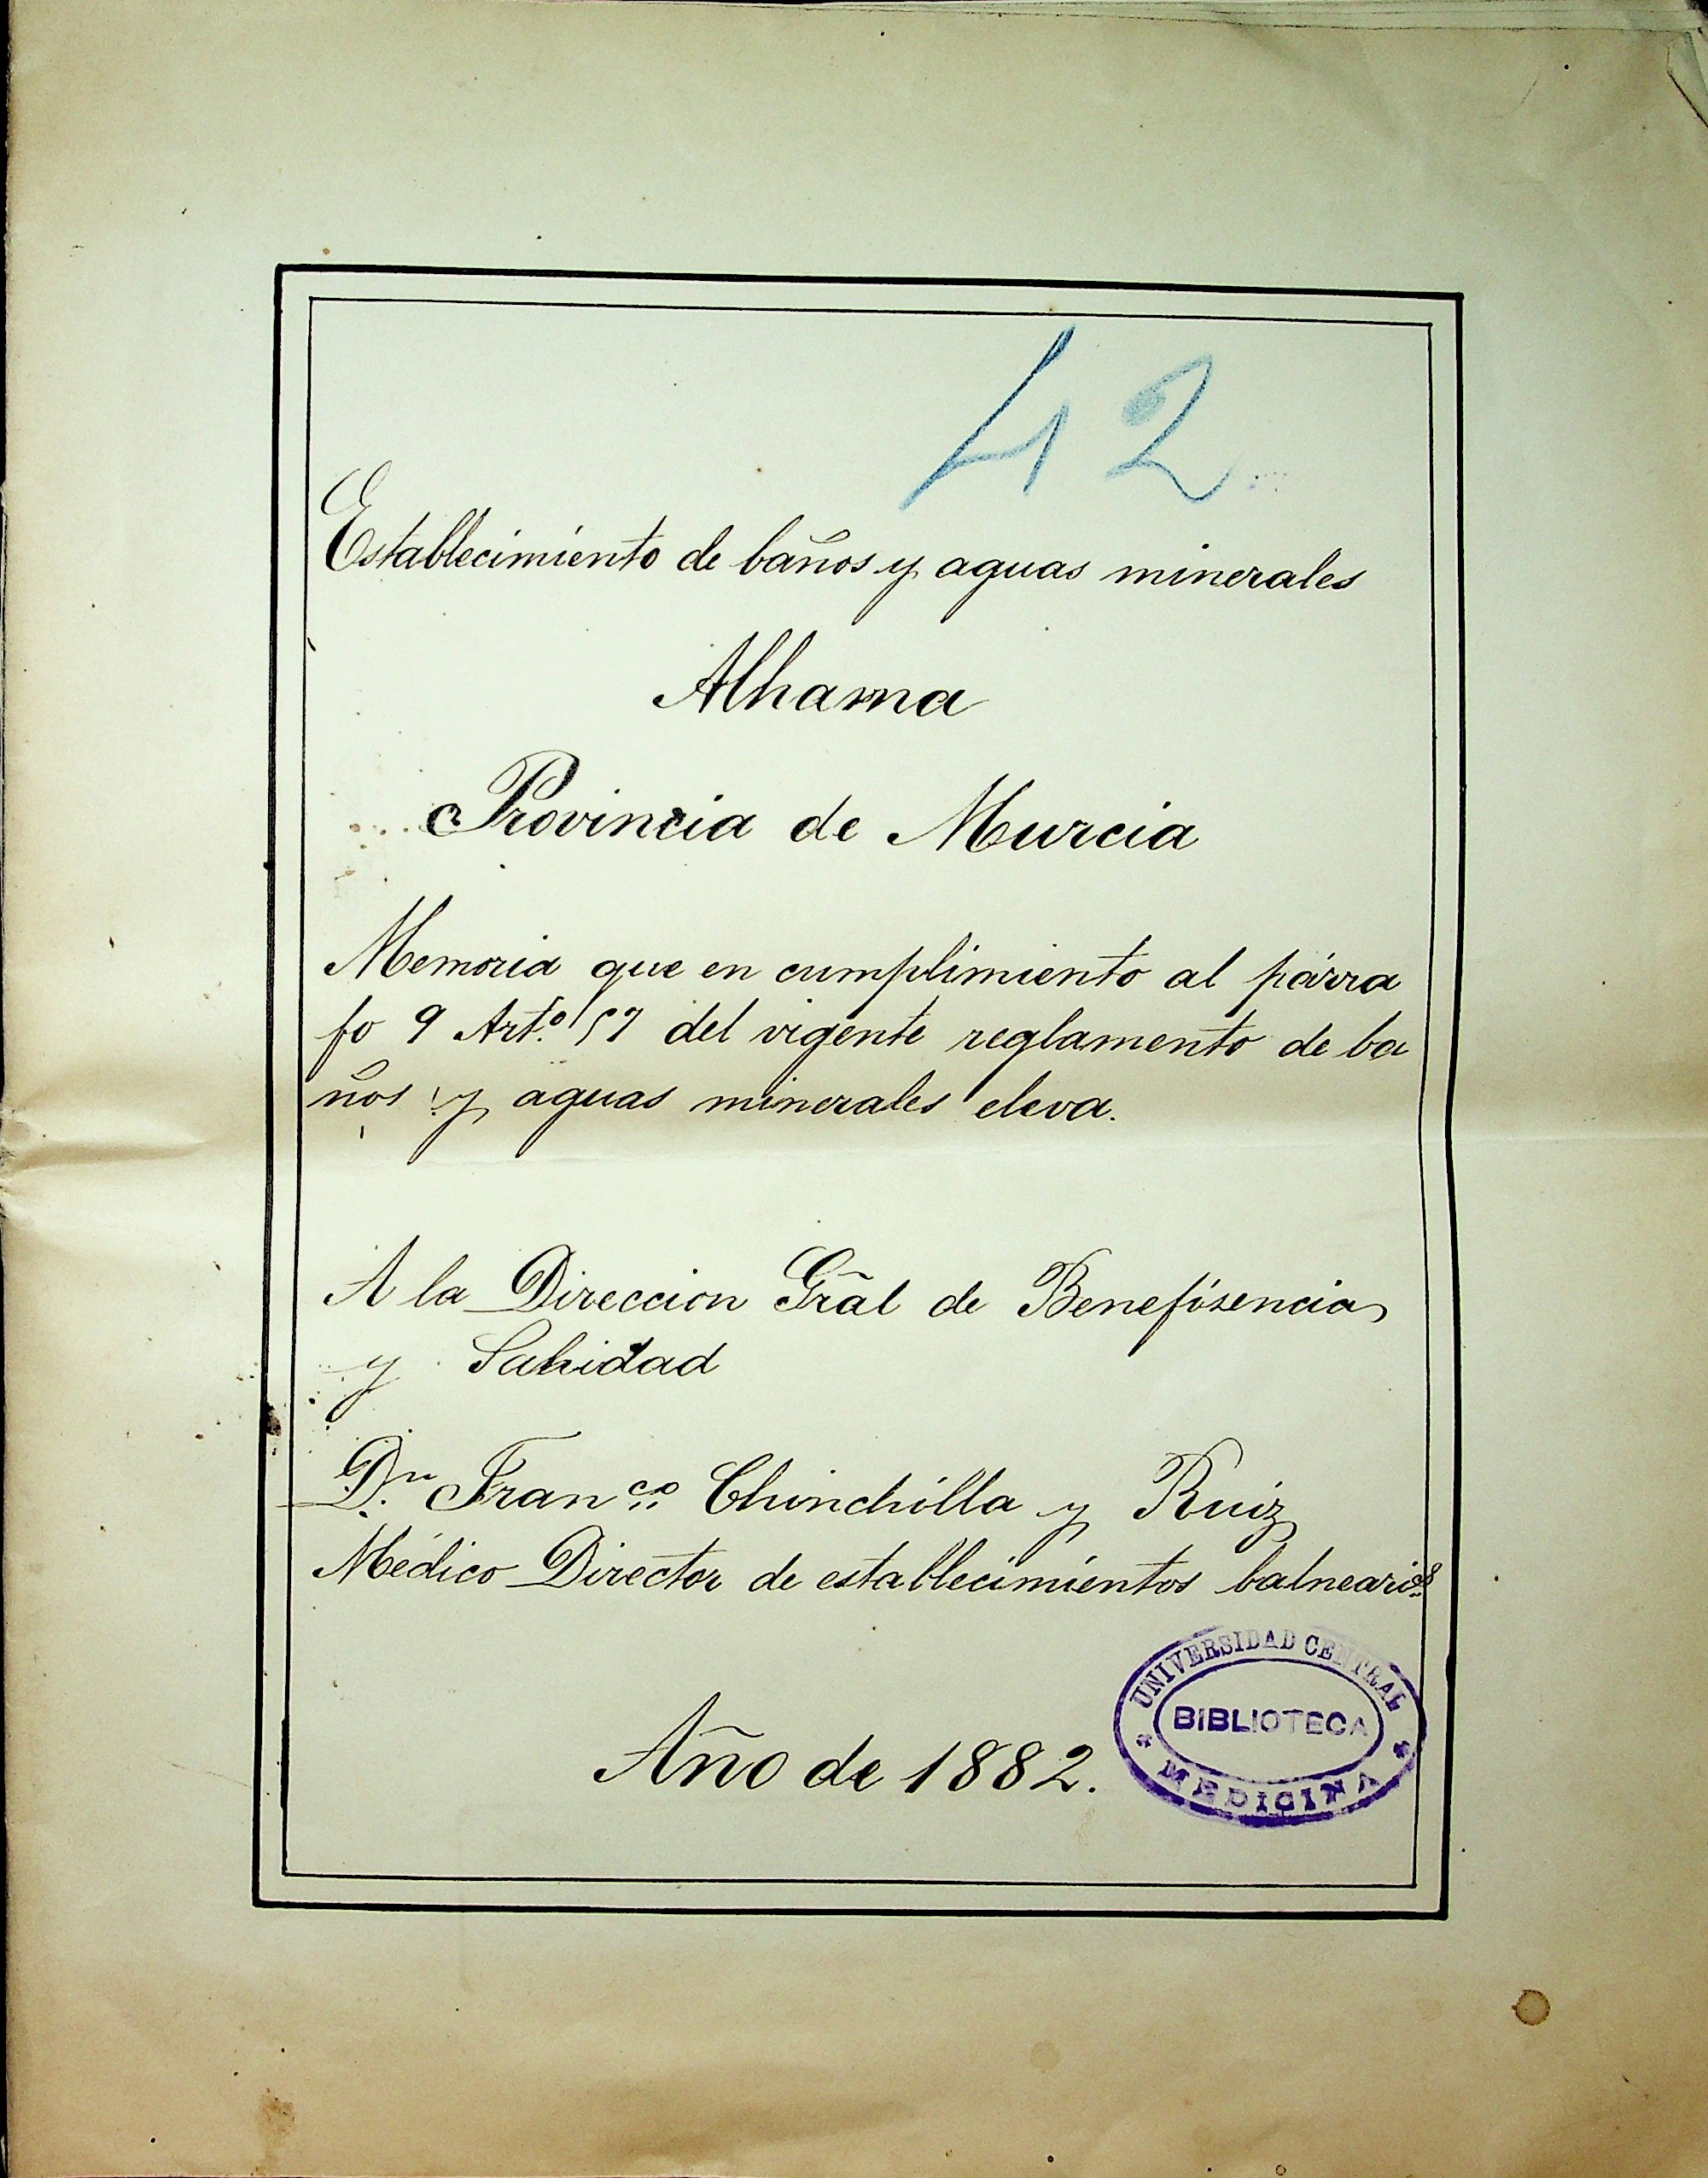 42
Establecimiento de baños y aguas minerales
Alhama
Provincia de Murcia
Memoria que en cumplimiento al párra
fo 9 Art.º 57 del vigente reglamento de ba
ños y aguas minerales eleva.
A la Direccion Gñal de Benefisencia
y Sanidad
D.n Fran.co Chinchilla y Ruiz
Médico Director de establecimientos balnearios
UNIVERSIDAD CENTRAL
BIBLIOTECA
MEDICINA
Año de 1882.